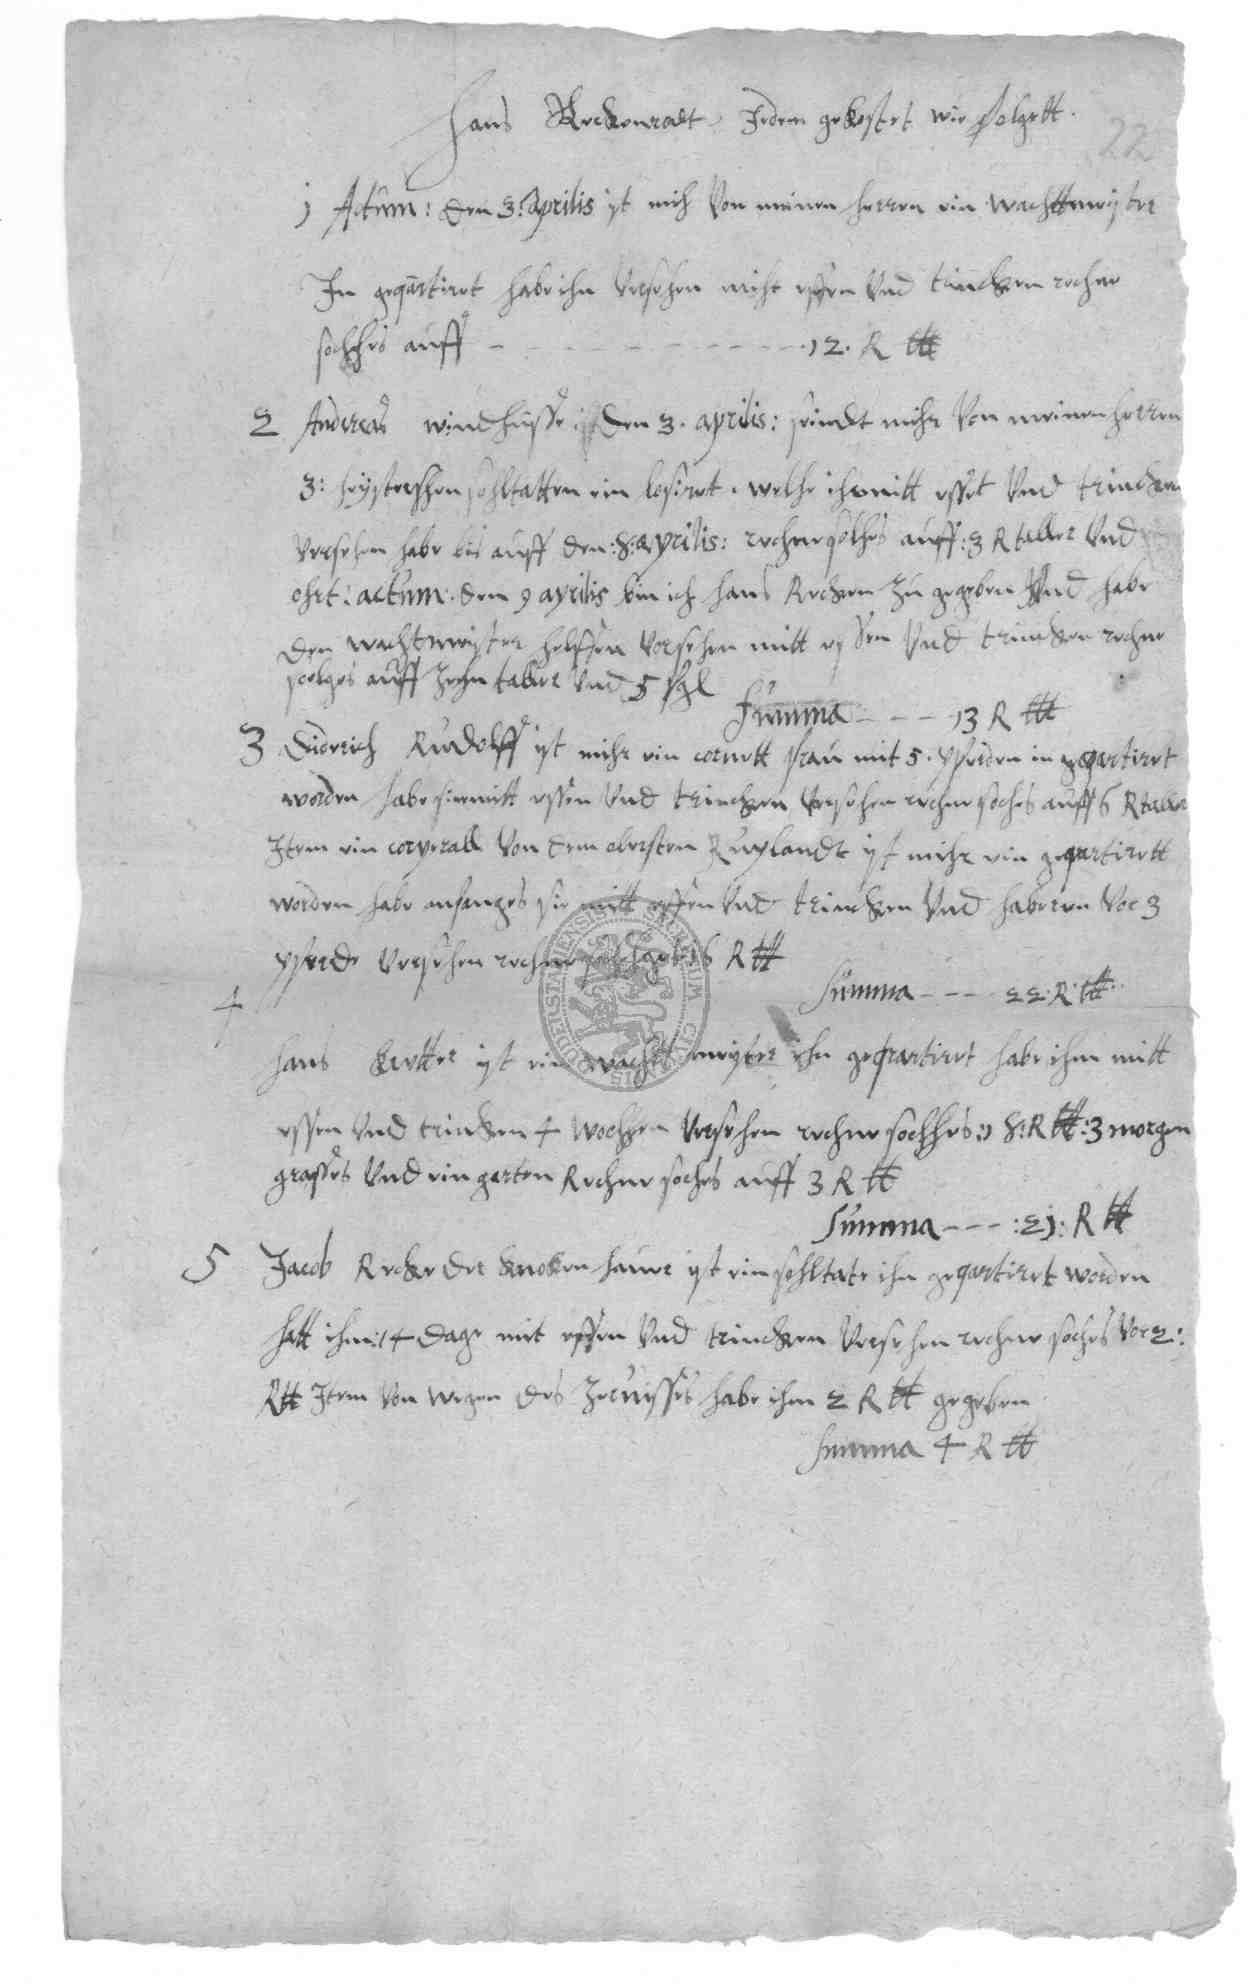 Hans Reckenratt Jedem gekostet wie folgett.
22
1 Actum: den 3. Aprilis ist mih Von meinen herren ein wachttmeister
In geqartiret habe ihn Versehen miht essen Vnd trincken rechne
solches auff - - - - - - - - - - - 12. R ttl
2 Andereas windhusse den 3. aprilis: seindt mihr Von meinen herren
3: solttatten ein losiret. welche ich mitt esset Vnd trincken
Versehen habe bis auff den: 8: aprilis: rechne solhes auff: 3 R taller Vnd
ohrt: actum. den 9 aprilis bin ich hans Recken zu gegeben Vnd habe
den wachtmeister helffen Versehen mitt essen Vnd trincken rechne
soelges auff zehn taller Vnd 5 sgl
Summa - - - 13 R ttl
3 Didreich Rudolff ist mihr ein cornett frau mit 5. pferden in geqartiret
worden habe sie mitt essen Vnd trincken Versehen rechne soches auff 6 R taller
Item ein corperall Von dem obersten Ruylandt ist mihr ein geqartirett
worden habe anfanges sie mitt essen Vnd trincken Vnd haberen Vor 3
pferde Versehen rechne 16 R ttl
Summa - - - 22. R. ttl.
4
hans ist ein wachttmeister ihn geqartiret habe ihm mitt
essen Vnd trincken 4 wochgen Versehen rechne sochhes: 18: R ttl: 3 morgen
grasses Vnd ein garten Rechne soches auff 3 R ttl
Summa - - - : 21: R ttl
5 Jacob Recke der knoken hauer ist ein sohltate ihn geqartiret worden
hatt ihm: 14 dage mit essen Vnd trincken Versehen rechne soches Vor 2:
R ttl Item Von wegen des habe ihm 2 R ttl gegeben
Summa 4 R ttl